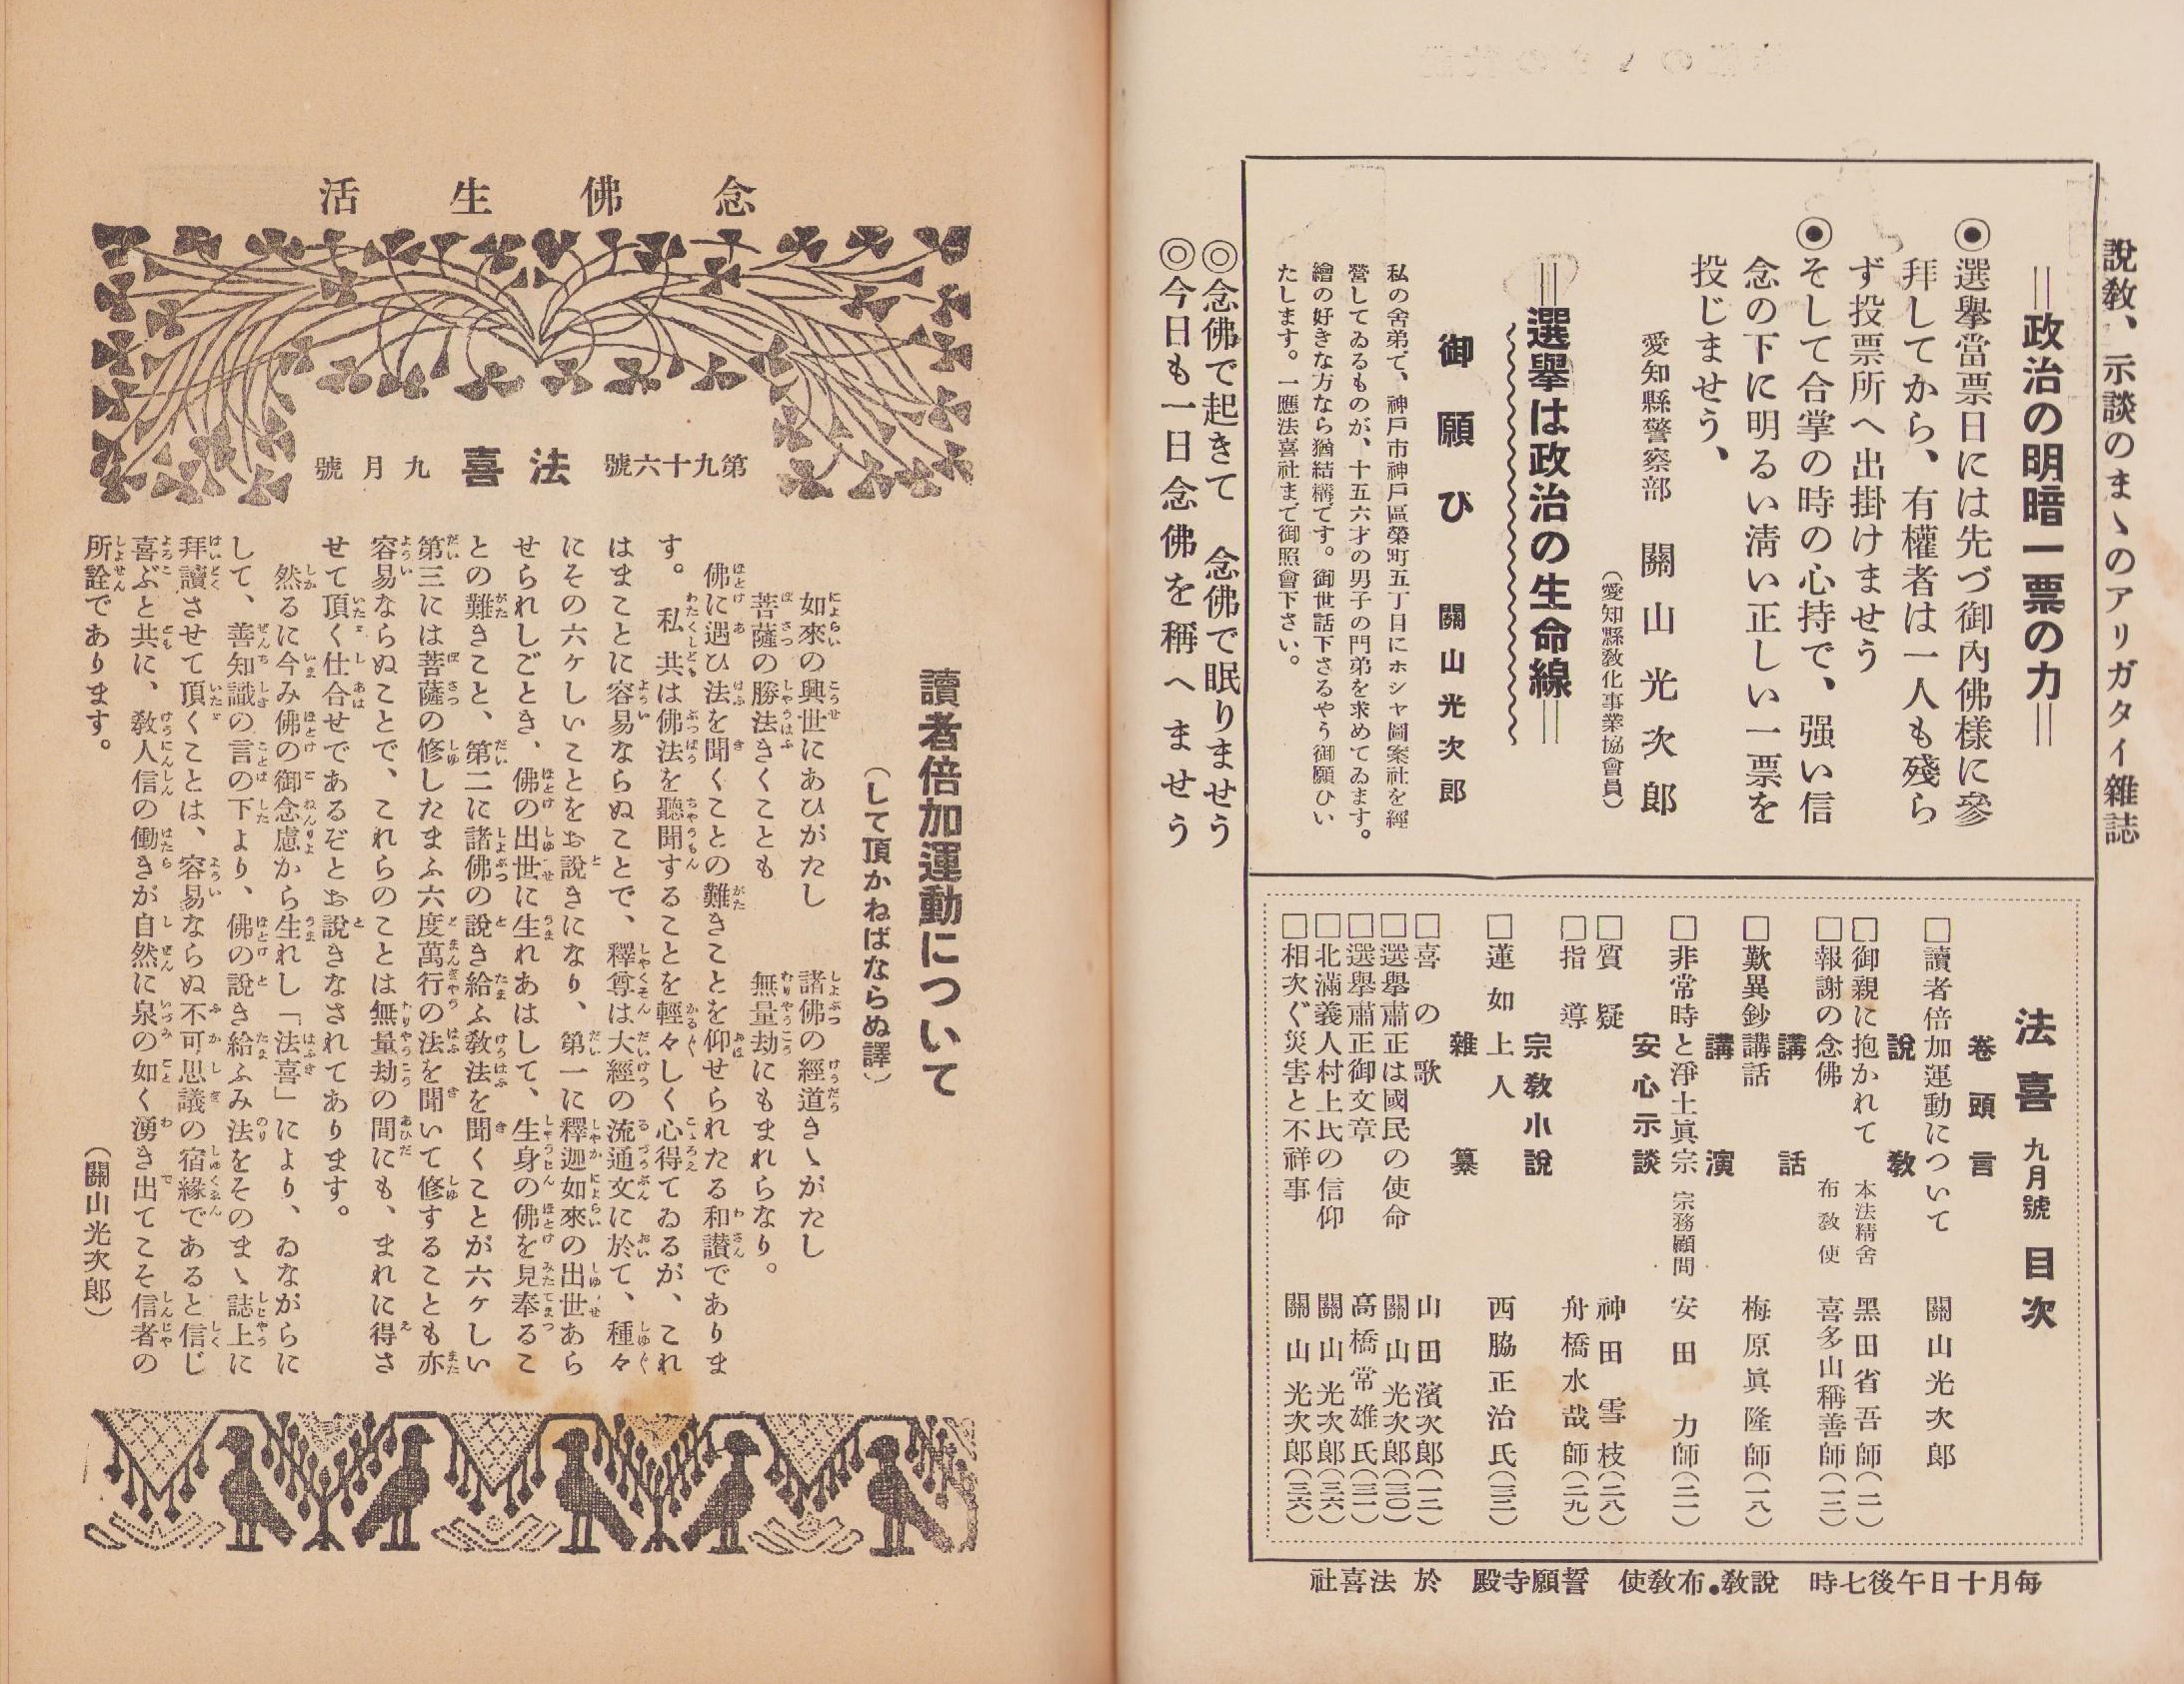 說敎、示談のまゝのアリガタイ雜誌
＝政治の明暗一票の力＝
◉選擧當票日には先づ御內佛樣に參
拜してから、有權者は一人も殘ら
ず投票所へ出掛けませう
◉そして合掌の時の心持で、强い信
念の下に明るい淸い正しい一票を
投じませう、
愛知縣警察部　關山光次郎
（愛知縣敎化事業協會員）
＝選擧は政治の生命線＝
御願ひ　關山光次郎
私の舍弟で、神戶市神戶區榮町五丁目にホシヤ圖案社を經
營してゐるものが、十五六才の男子の門弟を求めてゐます。
繪の好きな方なら猶結構です。御世話下さるやう御願ひい
たします。一應法喜社まで御照會下さい。
法喜　九月號　目次
卷頭言
□讀者倍加運動について　關山光次郎
說敎
□御親に抱かれて　本法精舍　黑田省吾師（二）
□報謝の念佛　布敎使　喜多山稱善師（一三）
講話
□歎異鈔講話　梅原眞隆師（一八）
講演
□非常時と淨土眞宗　宗務顧問　安田力師（二一）
安心示談
□質疑　神田雪枝（二八）
□指導　舟橋水哉師（二九）
宗敎小說
□蓮如上人　西脇正治氏（三二）
雜纂
□喜の歌　山田濱次郎（一二）
□選擧肅正は國民の使命　關山光次郎（三〇）
□選擧肅正御文章　高橋常雄氏（三一）
□北滿義人村上氏の信仰　關山光次郎（三六）
□相次ぐ災害と不祥事　關山光次郎（三六）
每月十日午後七時　說敎・布敎使　誓願寺殿　於　法喜社
◎念佛で起きて　念佛で眠りませう
◎今日も一日念佛を稱へませう
念佛生活
第九十六號　法喜　九月號
讀者倍加運動について
（して頂かねばならぬ譯）
如來の興世にあひがたし　諸佛の經道きゝがたし
菩薩の勝法きくことも　無量劫にもまれらなり。
佛に遇ひ法を聞くことの難きことを仰せられたる和讃でありま
す。私共は佛法を聽聞することを輕々しく心得てゐるが、これ
はまことに容易ならぬことで、釋尊は大經の流通文に於て、種々
にその六ヶしいことをお說きになり、第一に釋迦如來の出世あら
せられしごとき、佛の出世に生れあはして、生身の佛を見奉るこ
との難きこと、第二に諸佛の說き給ふ敎法を聞くことが六ヶしい
第三には菩薩の修したまふ六度萬行の法を聞いて修することも亦
容易ならぬことで、これらのことは無量劫の間にも、まれに得さ
せて頂く仕合せであるぞとお說きなされてあります。
然るに今み佛の御念慮から生れし「法喜」により、ゐながらに
して、善知識の言の下より、佛の說き給ふみ法をそのまゝ誌上に
拜讀させて頂くことは、容易ならぬ不可思議の宿緣であると信じ
喜ぶと共に、敎人信の働きが自然に泉の如く湧き出てこそ信者の
所詮であります。
（關山光次郎）